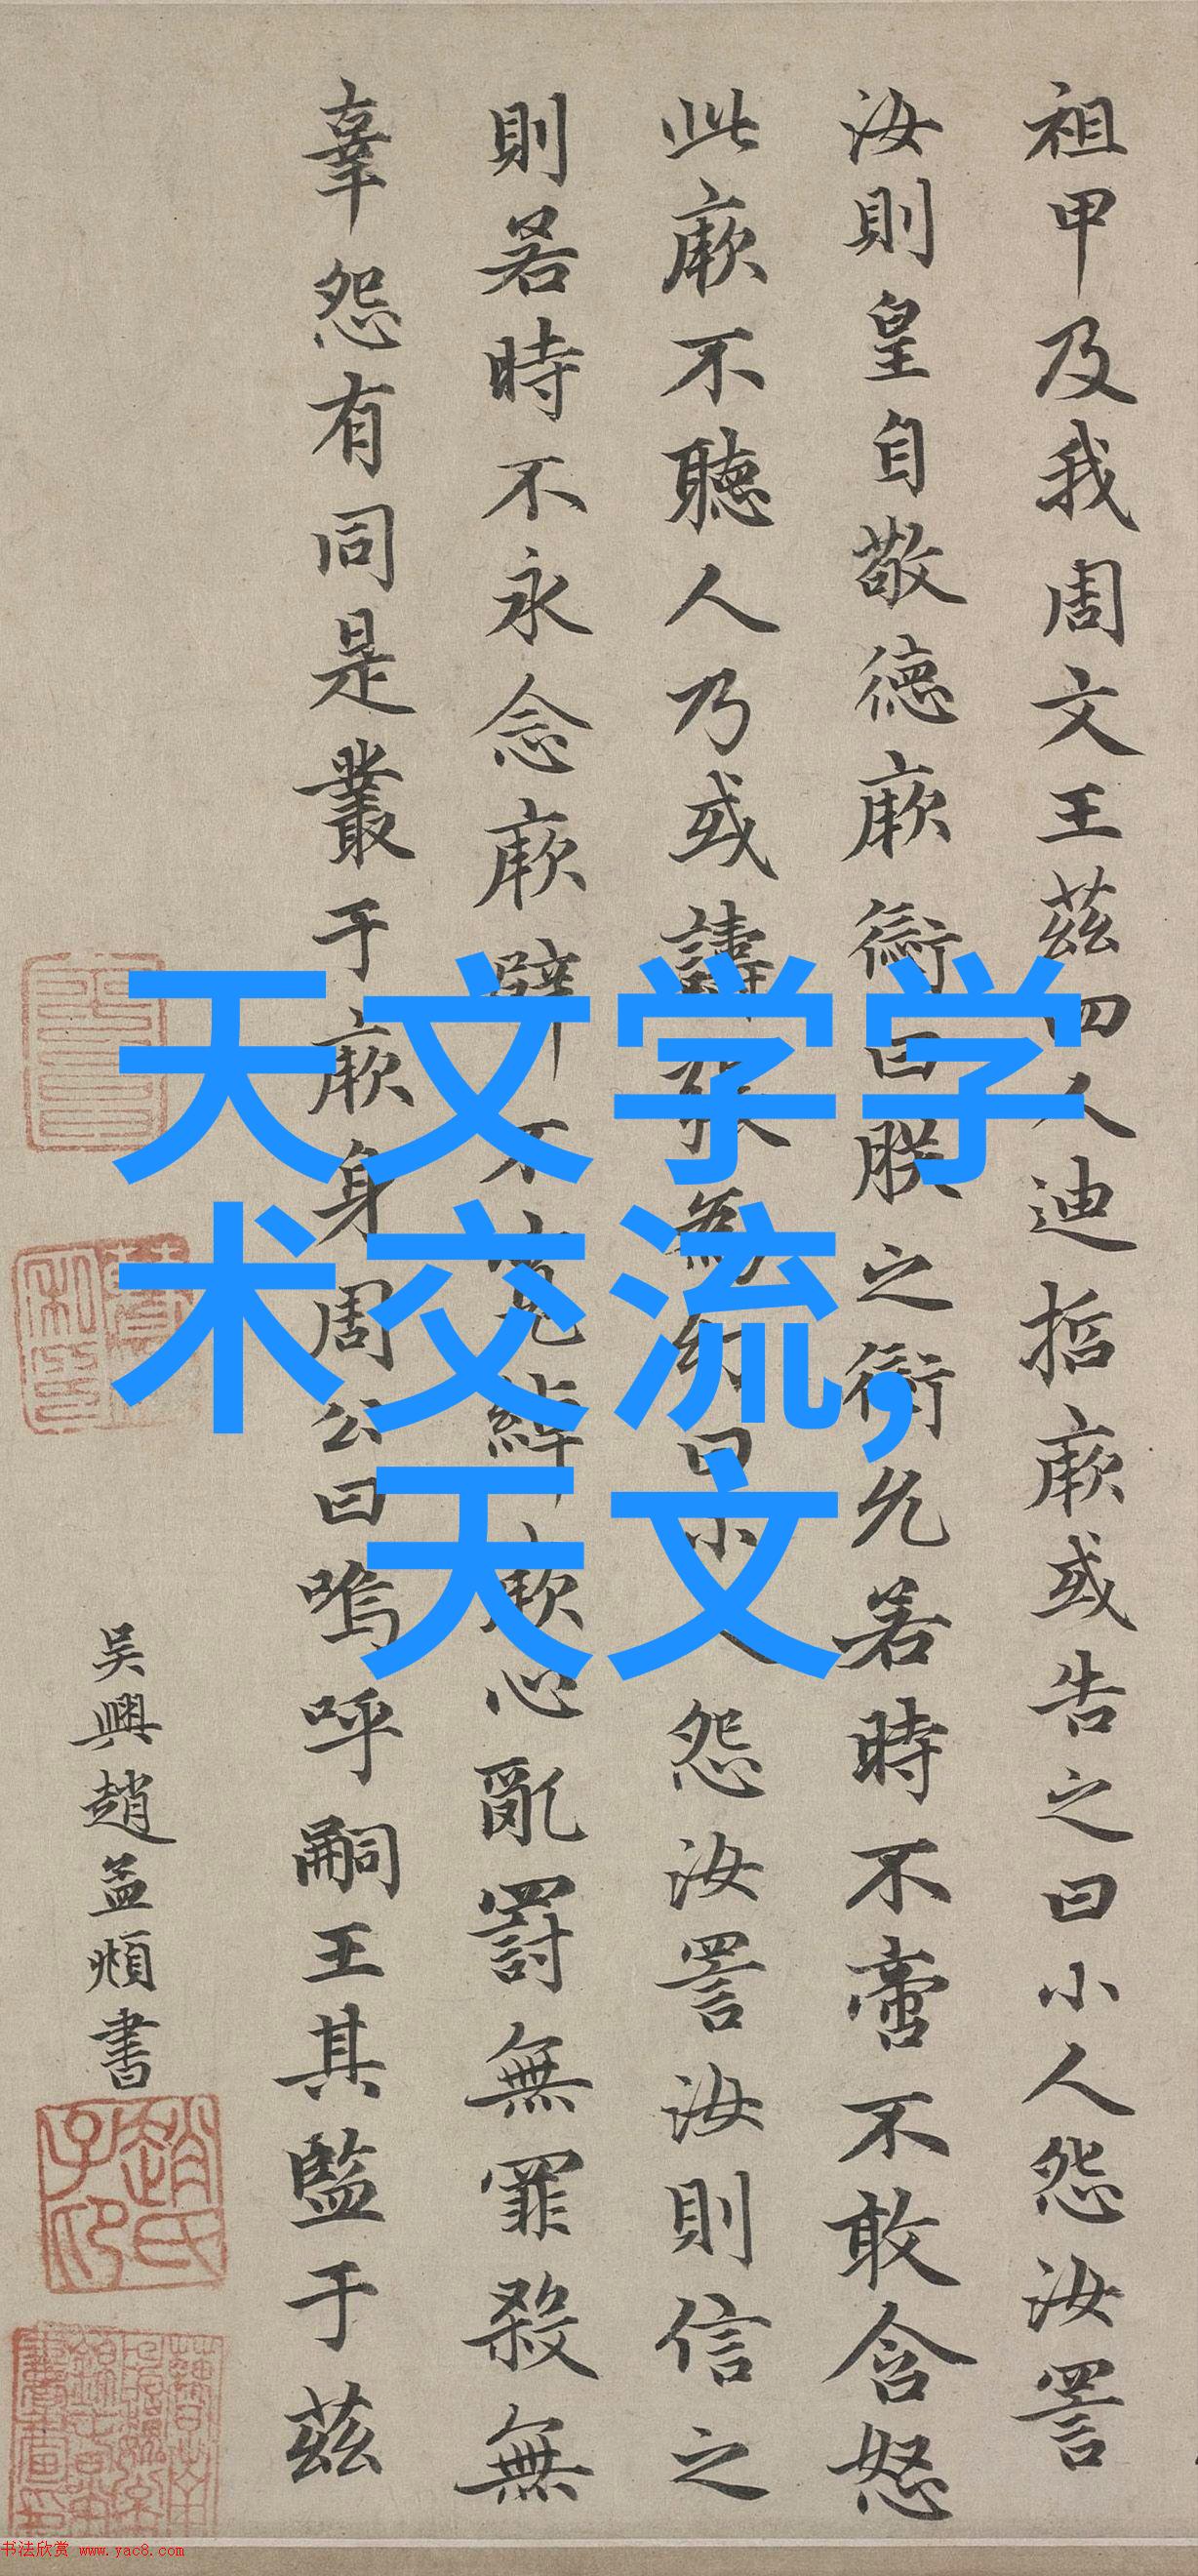 祖甲及我周文王茲四人迪哲厥或告之曰小人怨汝詈
汝則皇自敬德厥愆曰朕之愆允若時不啻不敢含怒
此厥不聽人乃或譸張為幻曰小人怨汝詈汝則信之
則若時不永念厥辟不寬綽厥心亂罰無罪殺無
辜怨有同是叢于厥身周公曰嗚呼嗣王其監于茲
吳興趙孟頫書
趙氏子昂
天文学学
术交流,
天文
书法欣赏 www.yac8.com